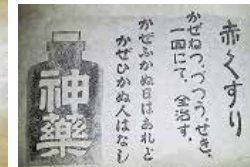 赤くすり
かぜねつ、づつう、せき、
一回にて、全治す。
かぜふかぬ日はあれど
かぜひかぬ人はなし
神藥